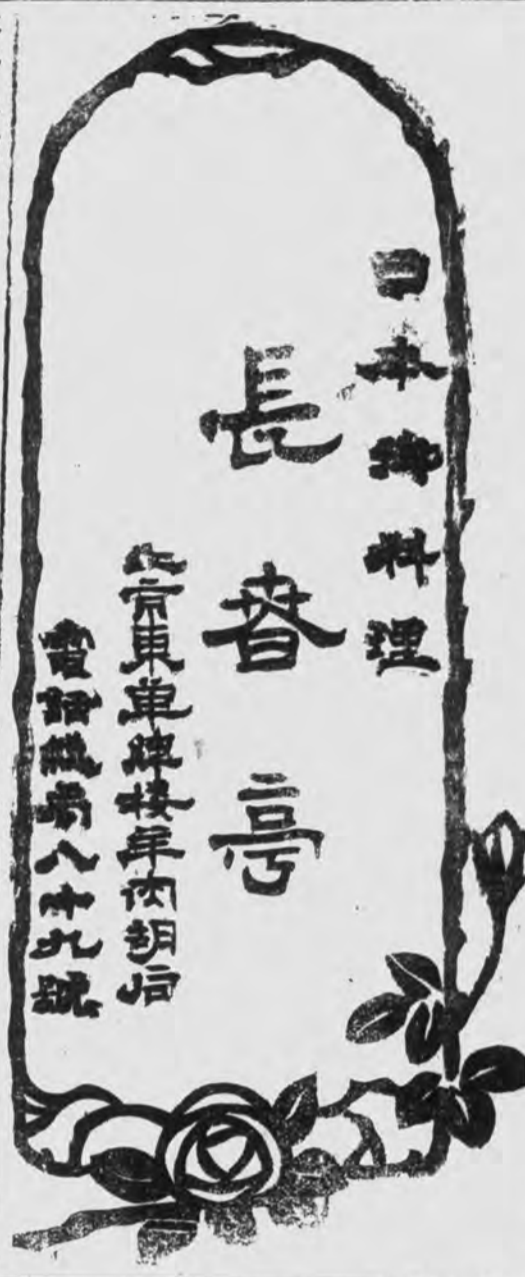 日本御料理
長春亭
北京東單牌樓羊肉胡同
電話總局八十九號